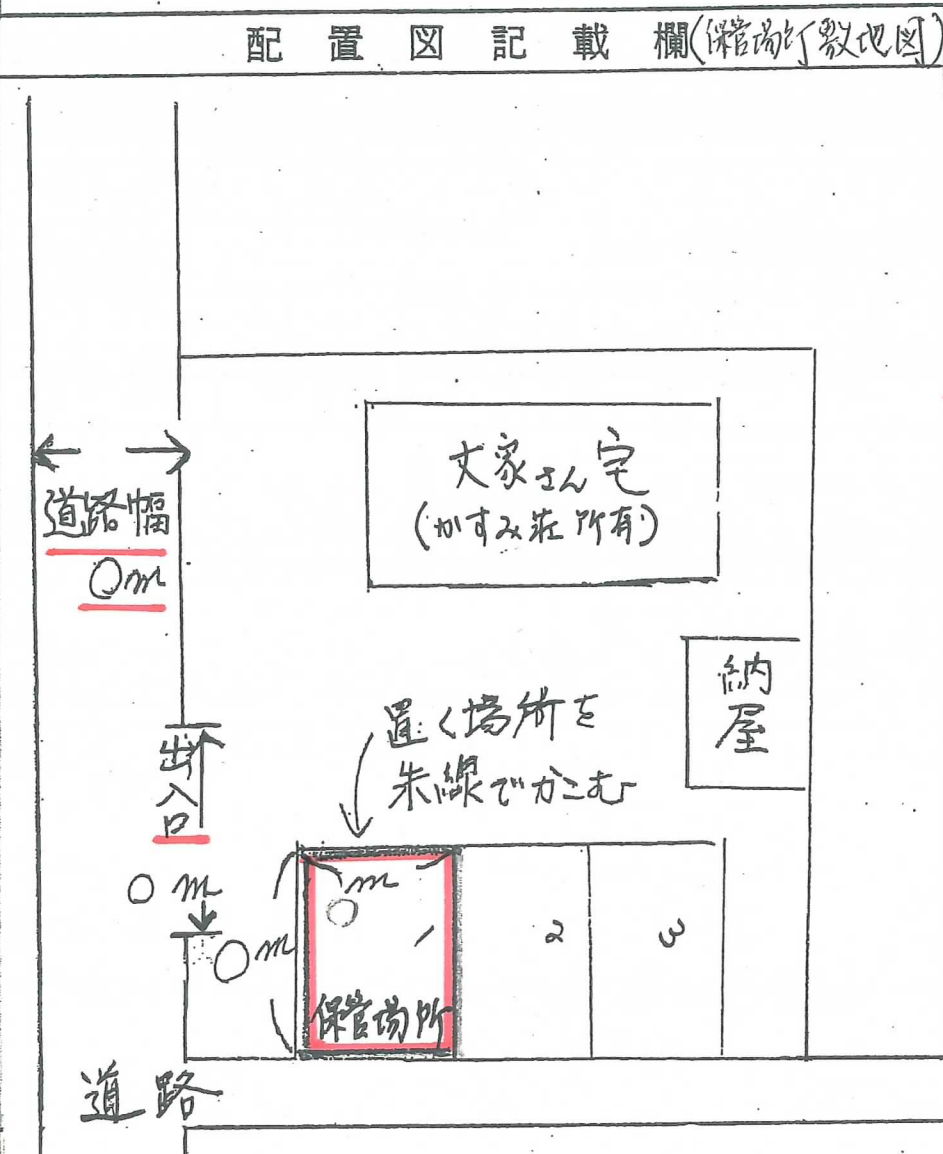 配置図記載欄(保管場所敷地図)
大家さん宅
(かすみ荘所有)
道路幅
○m
納屋
置く場所を
朱線でかこむ
出入口
○m
○m
○m
1
2
3
保管場所
道路